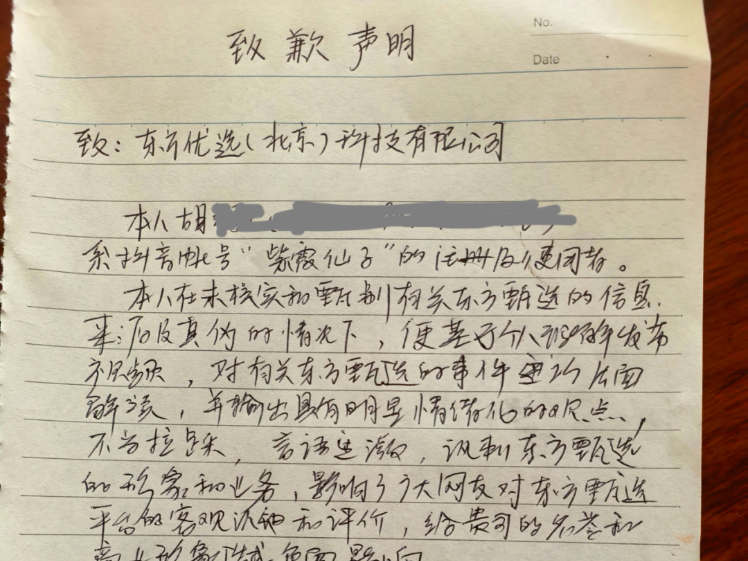 No.
Date
致歉声明
致：东方优选（北京）科技有限公司
本人胡
系抖音帐号“紫霞仙子”的注册及使用者。
本人在未核实和甄别有关东方甄选的信息
来源及真伪的情况下，便基于个人理解发布
视频，对有关东方甄选的事件进行负面
解读，并输出具有明显情绪化的观点，
不当拉踩，言语过激，讽刺东方甄选
的形象和业务，影响了广大网友对东方甄选
平台的客观认知和评价，给贵司的名誉和
商业形象造成负面影响